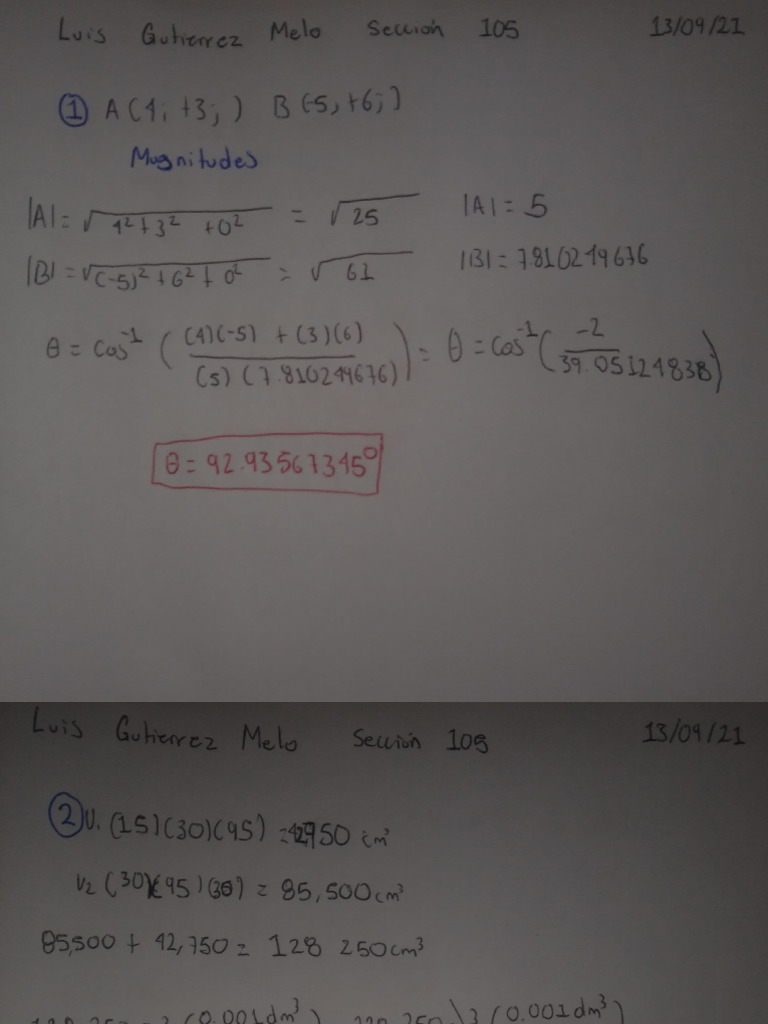 Luis Gutierrez Melo Sección 105 13/09/21
① A(4; +3;) B(-5, +6;)
Magnitudes
|A| = √4² + 3² + 0² = √25 |A| = 5
|B| = √(-5)² + 6² + 0² = √61 |B| = 7.810249676
θ = cos⁻¹ ( (4)(-5) + (3)(6) / (5)(7.810249676) ) = θ = cos⁻¹ ( -2 / 39.05124838 )
θ = 92.93567345°
Luis Gutierrez Melo Sección 105 13/09/21
② V. (15)(30)(95) = 42750 cm³
V₂ (30)(95)(30) = 85,500 cm³
85,500 + 42,750 = 128 250 cm³
(0.001 dm³) (0.001 dm³)